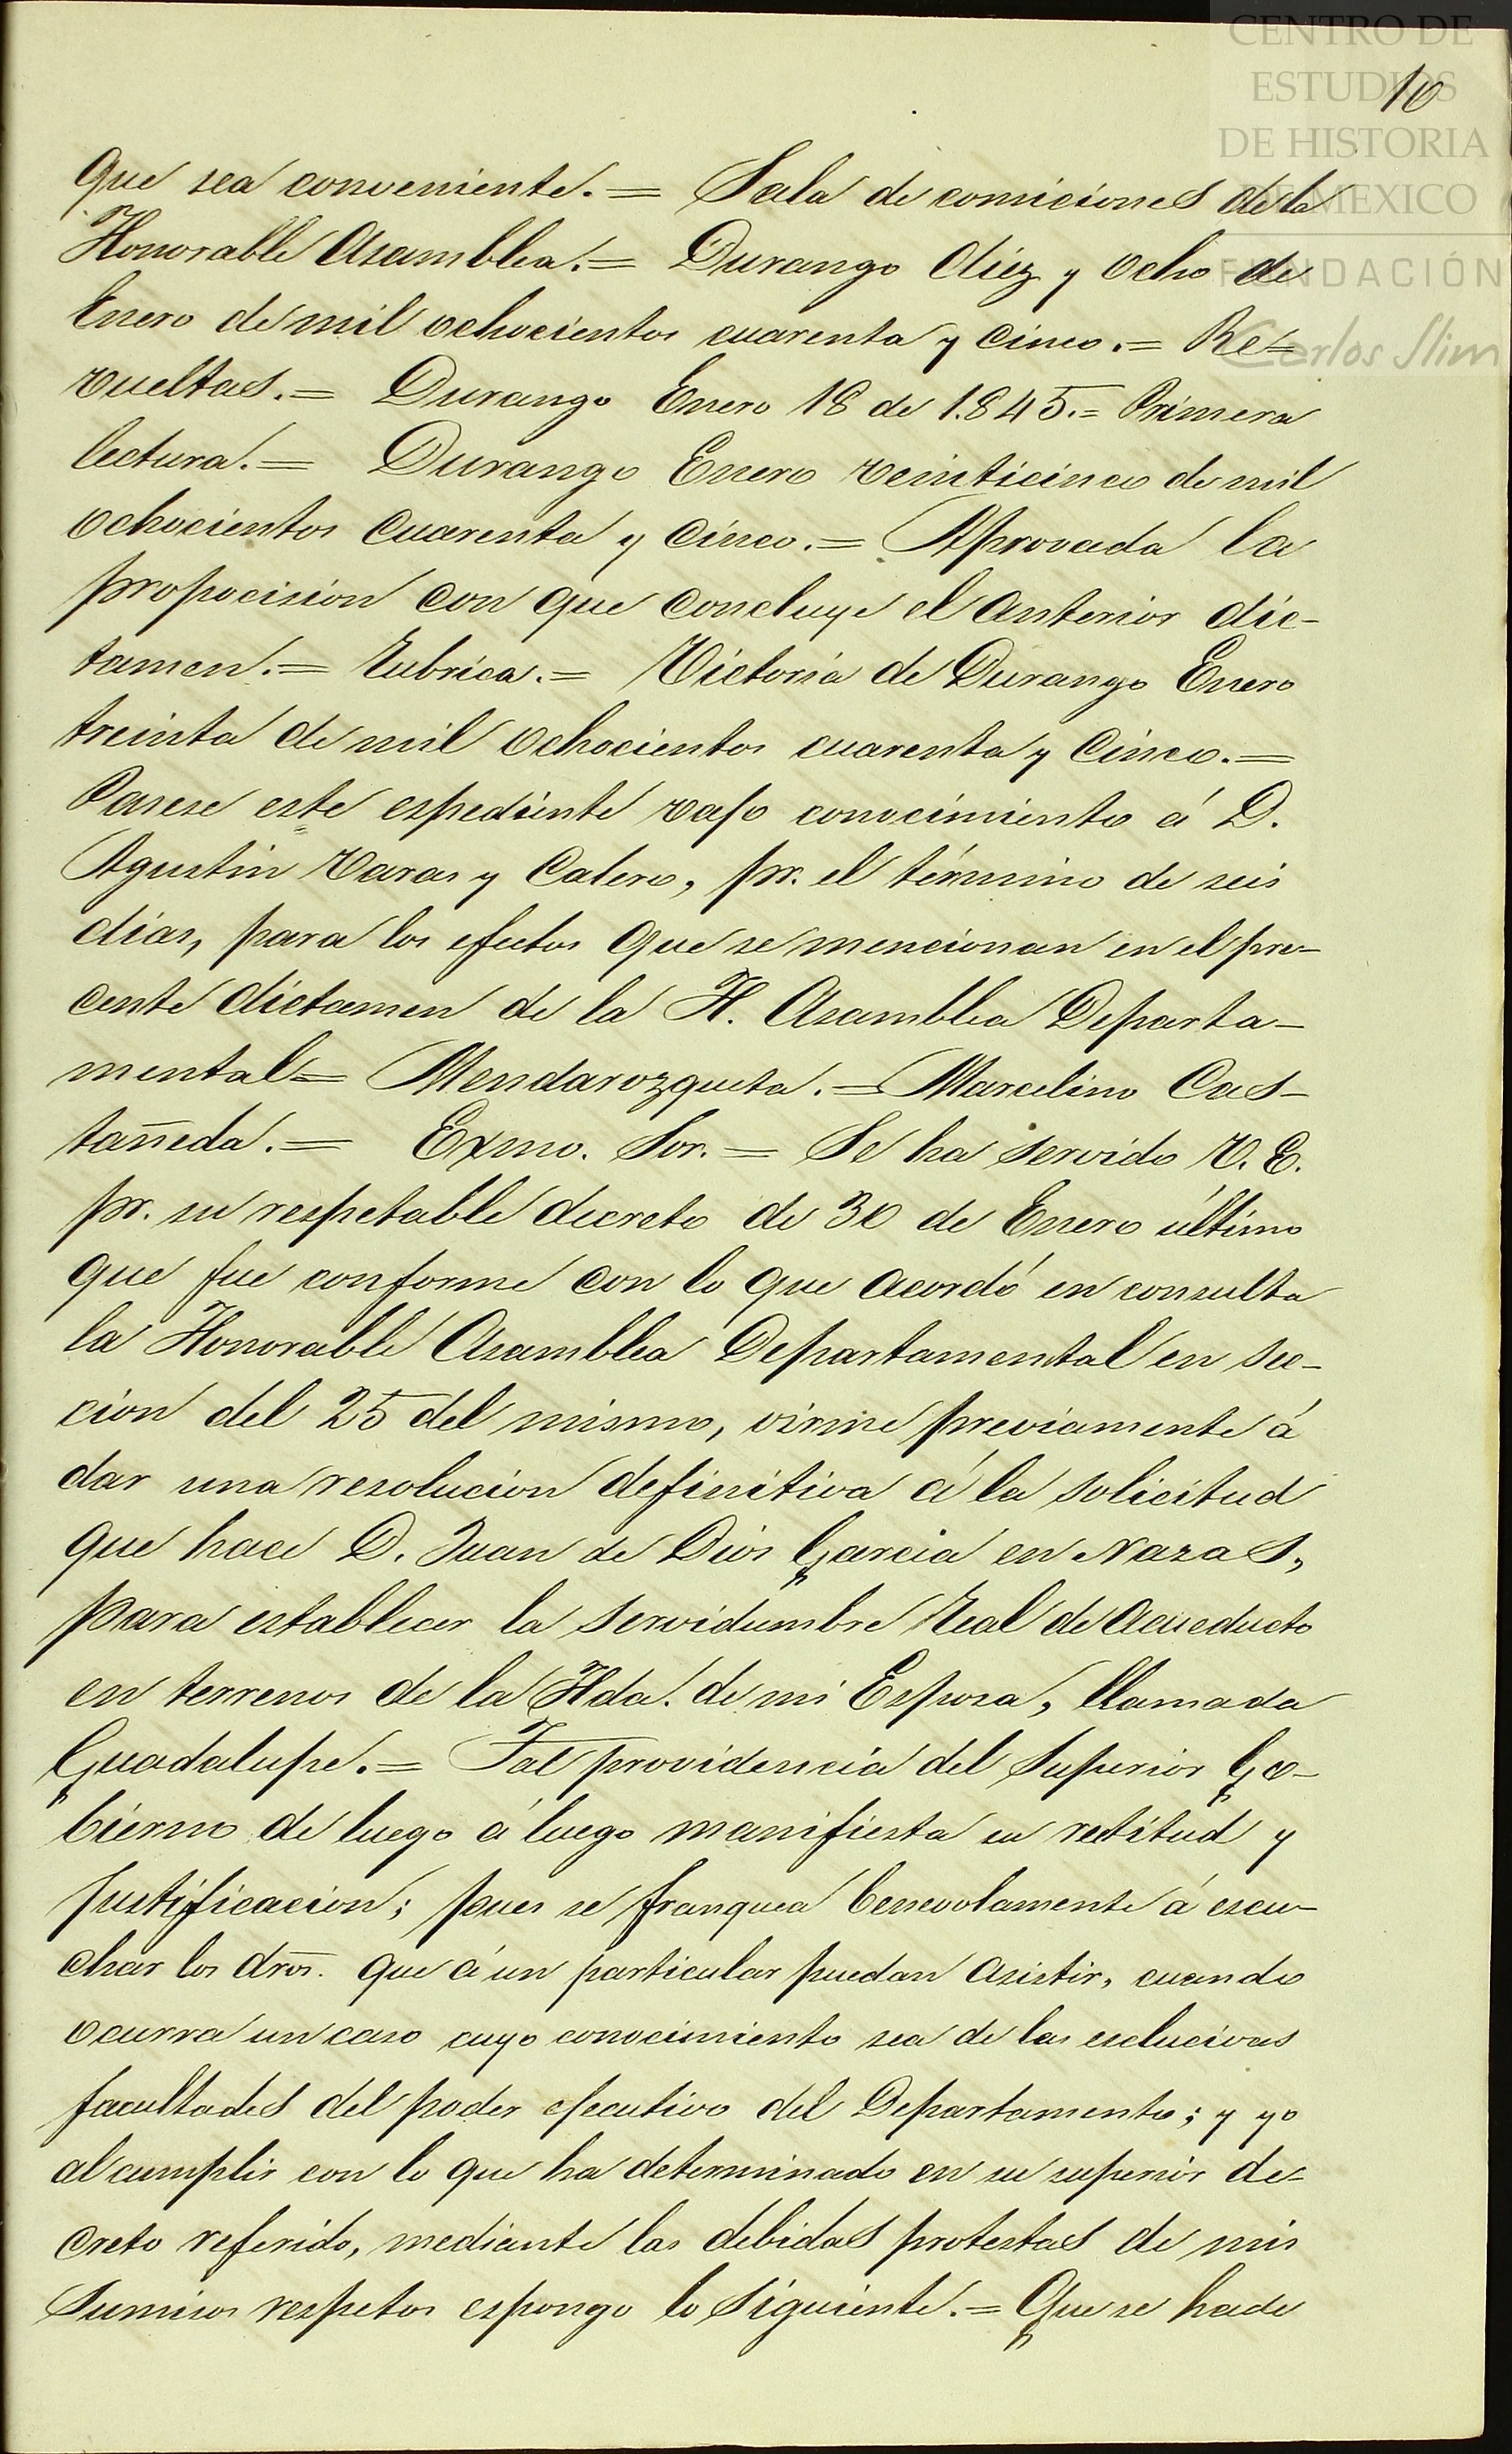 10
que sea conveniente.= Sala de comiciones de la
Honorable Asamblea.= Durango diez y ocho de
Enero de mil ochocientos cuarenta y cinco.= Re=
vueltas.= Durango Enero 18 de 1.845.= Primera
lectura.= Durango Enero veinticinco de mil
ochocientos cuarenta y cinco.= Aprovada la
propocision con que concluye el anterior dic-
tamen.= Rubrica.= Victoria de Durango Enero
treinta de mil ochocientos cuarenta y cinco.=
Pasese este espediente vajo conocimiento á D.
Agustin Varas y Calero, pr. el término de seis
dias, para los efectos que se mencionan en el pre-
cente dictamen de la H. Asamblea Departa-
mental= Mendarozqueta.= Marcelino Cas-
tañeda.= Exmo. Sor.= Se ha servido V. E.
pr. su respetable decreto de 30 de Enero último
que fue conforme con lo que acordó en consulta
la Honorable Asamblea Departamental en sec-
cion del 25 del mismo, oirme previamente á
dar una resolucion definitiva á la solicitud
que hace D. Juan de Dios Garcia en Nazas,
para establecer la servidumbre Real de acueducto
en terrenos de la Hda. de mi Esposa, llamada
Guadalupe.= Tal providencia del Superior Go-
bierno de luego á luego manifiesta su rectitud y
justificacion; pues se franquea benevolamente á escu-
char los dros. que á un particular puedan asistir, cuando
ocurra un caso cuyo conocimiento sea de las esclucivas
facultades del poder ejecutivo del Departamento; y yo
al cumplir con lo que ha determinado en su superior de=
creto referido, mediante las debidas protestas de mis
sumisos respetos espongo lo siguiente.= Que se hade
CENTRO DE
ESTUDIOS
DE HISTORIA
DE MEXICO
FUNDACIÓN
Carlos Slim